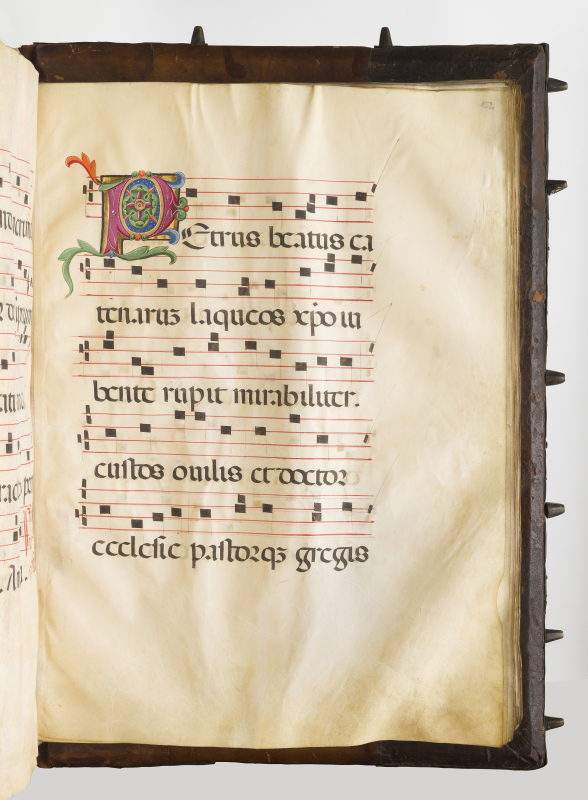 PEtrus beatus ca
tenaruȝ laqueos xp̄o iu
bente rupit mirabiliter.
custos ouilis et doctor
ecclesie pastorqȝ gregis